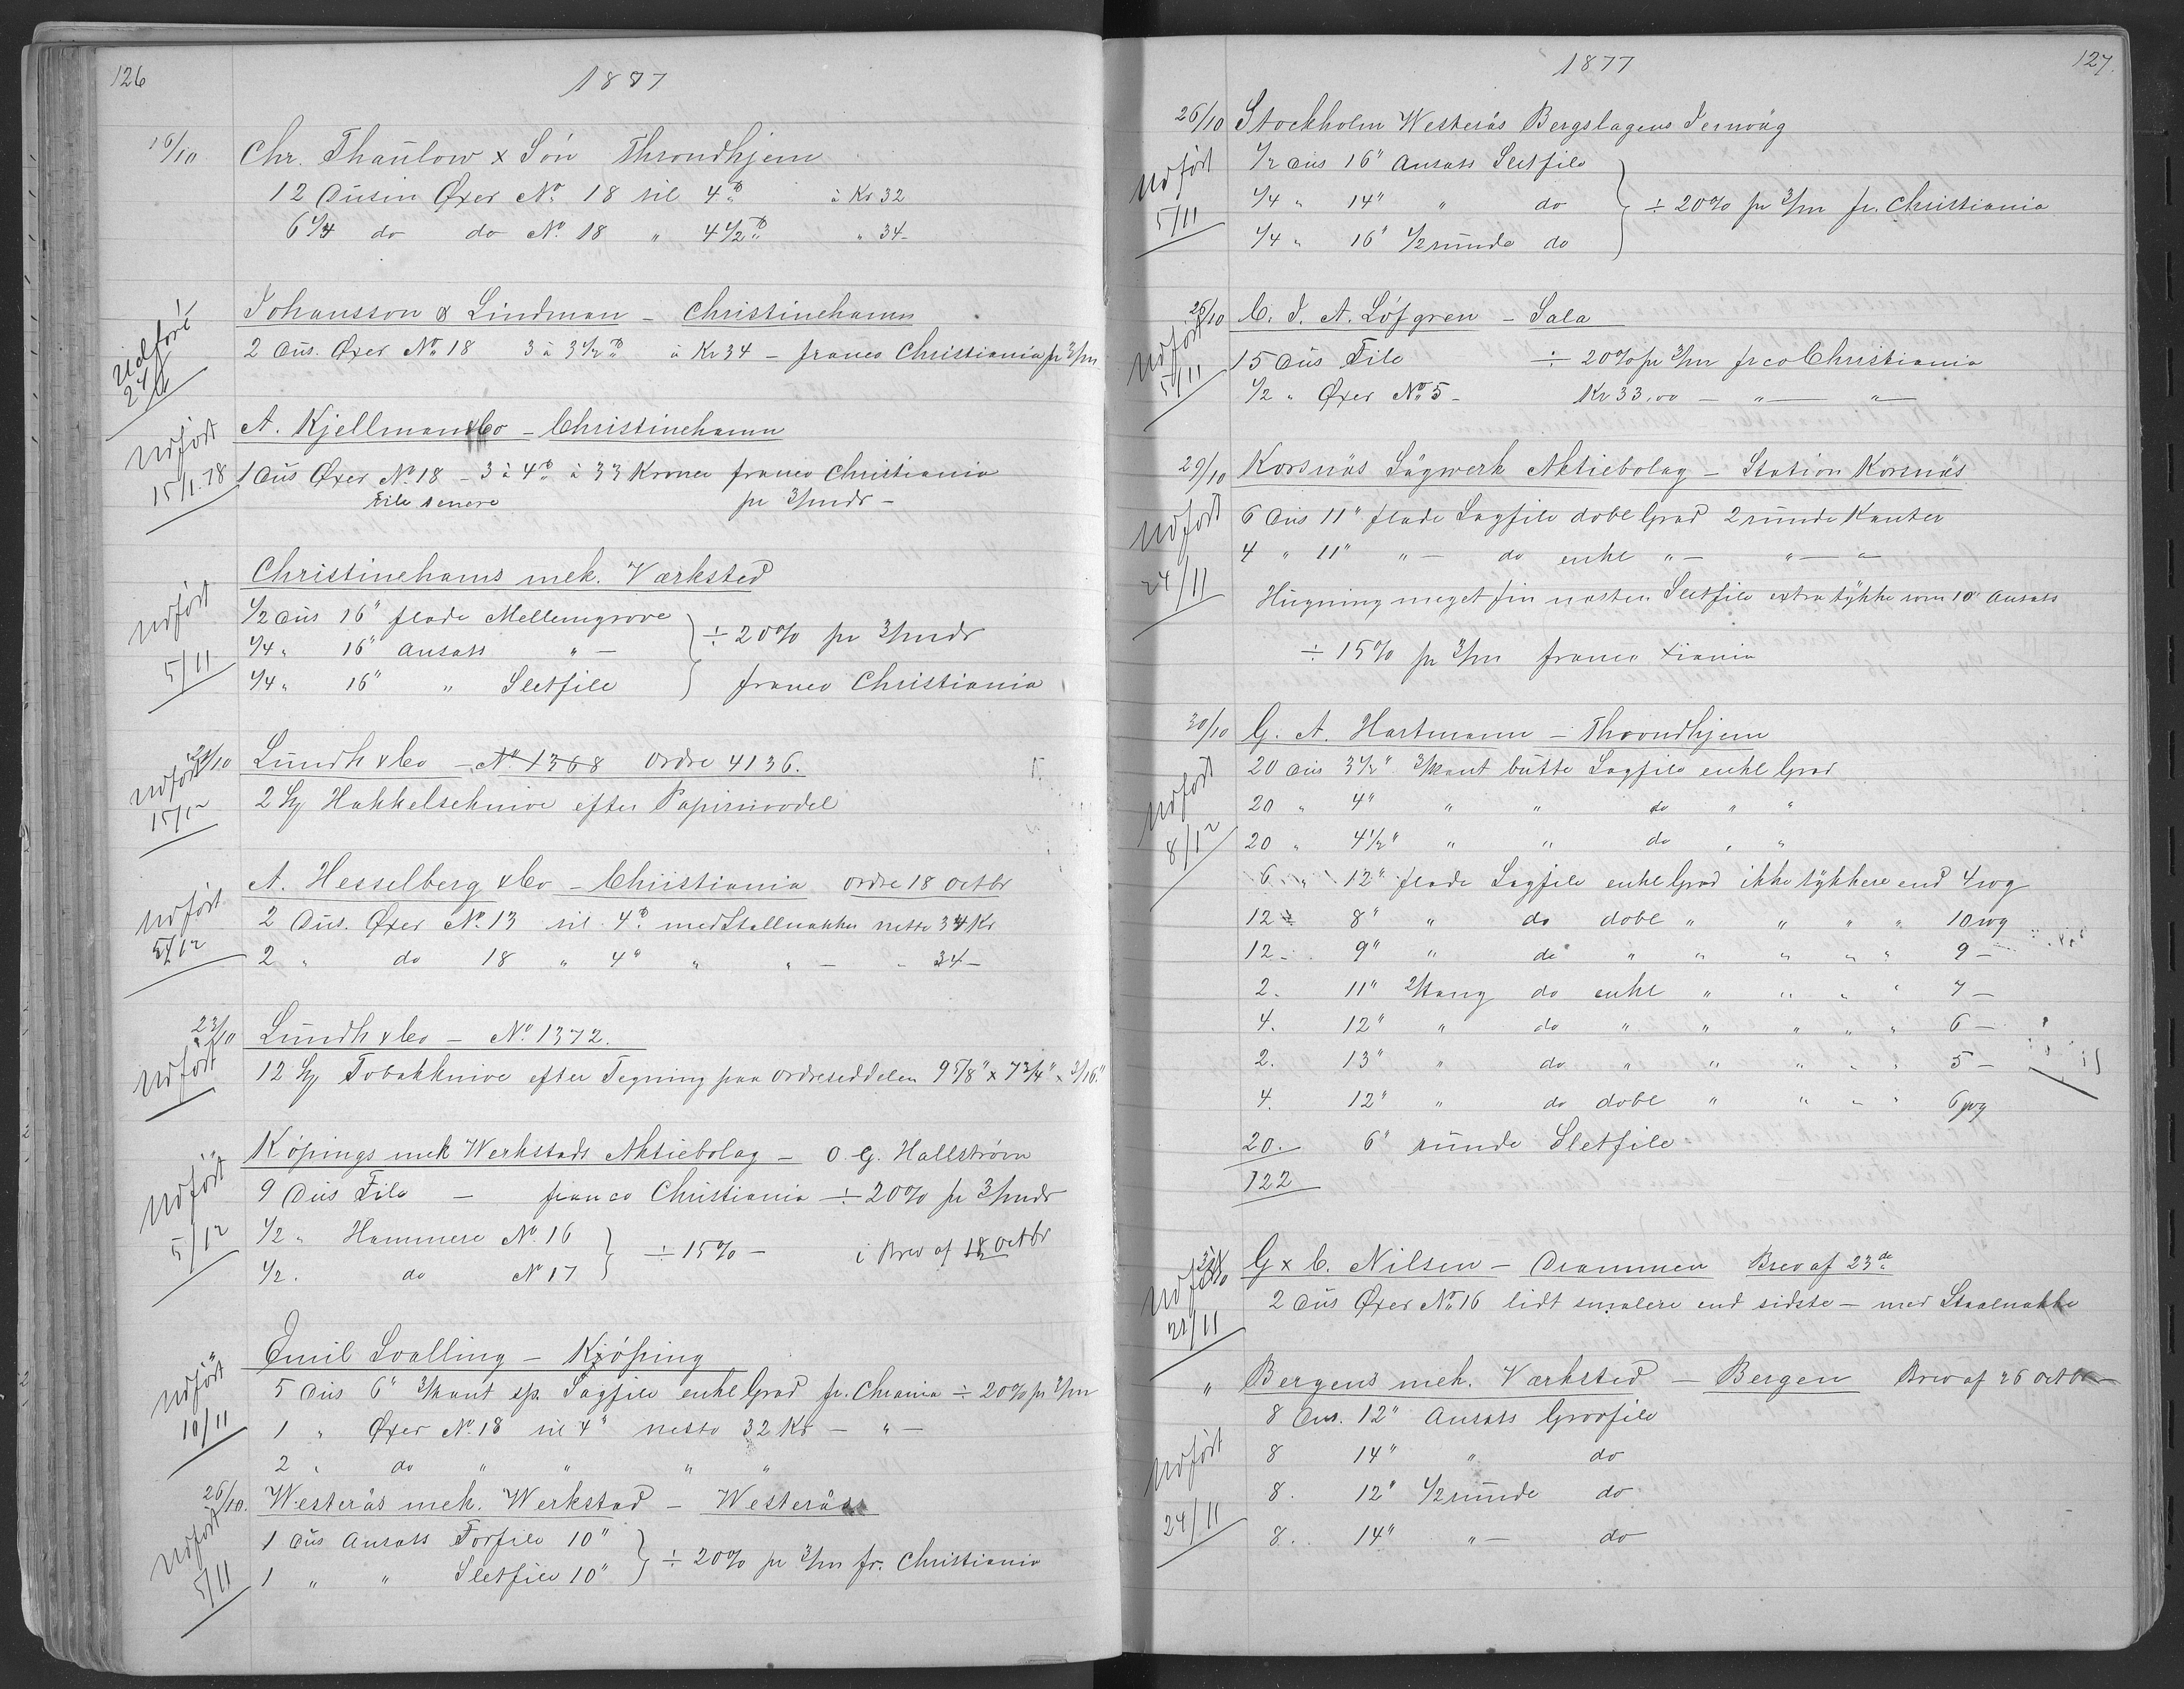 126
1877
16/10 Chr. Thaulow & Søn Throndhjem
12 Dusin Øxer No 18 til 4 ℔ à Kr 32
6 1/4 do do No 18 " 4 1/2 ℔ " 34-
Udført 24/11
Johansson & Lindman - Christinehamn
2 Dus. Øxer No 18 3 à 3 1/2 ℔ à Kr 34 - franco Christiania pr 3/mr
Udført 15/1.78
A. Kjellman & Co - Christinehamn
1 Dus Øxer No 18 - 3 à 4 ℔ à 33 Kroner franco Christiania
File senere pr 3/mdr -
Udført 5/11
Christinehams mek. Værksted
1/2 Dus 16" flade Mellemgrove
1/4 " 16" Ansats " -
÷ 20% pr 3/mdr
1/4 " 16" " Sletfile franco Christiania
Udført 15/12
21/10 Lundh & Co - No 1368 Ordre 4136.
2 St Hakkelseknive efter Papirmodel
Udført 5/12
A. Hesselberg & Co - Christiania Ordre 18 Octbr
2 Dus. Øxer No 13 til 4 ℔ med Stallnakke netto 34 Kr
2 " do 18 " 4" " " - - 34 -
23/10 Lundh & Co - No 1372.
Udført
12 St Tobakknive efter Tegning paa Ordreseddelen 9 5/8" x 7 3/4" x 3/16"
" Köpings mek Werkstads Aktiebolag - O. G. Hallström
Udført 5/12
9 Dus File - franco Christiania ÷ 20% pr 3/mdr
1/2 " Hammere No 16
÷ 15% - i Brev af 18 Octbr
1/2 . do No 17
" Emil Svalling - Kjöping
Udført 10/11
5 Dus 6" 3/kant sp. Sagfile enkl Grad fr. Chrania ÷ 20% pr 3/mr
1 " Øxer No 18 til 4" netto 32 Kr - " -
2 " do " " " "
26/10. Westerås mek. Werkstad - Westerås
Udført 5/11
1 Dus Ansats Forfile 10"
÷ 20% pr 3/mr fr. Christiania
1 " " Sletfile 10"
127.
1877
26/10 Stockholm Westerås Bergslagens Jernväg
Udført 5/11
1/2 Dus 16" Ansats Sletfile
1/4 " 14" " do ÷ 20% pr 3/mr fr. Christiania
1/4 " 16" 1/2 runde do
26/10 C. J. A. Löfgren - Sala
Udført 5/11
15 Dus File ÷ 20% pr 3/mr frco Christiania
1/2 " Øxer No 5 - Kr 33,00 - " - " -
29/10 Korsnäs Sågwerk Aktiebolag - Station Korsnäs
Udført 24/11
6 Dus 11" flade Sagfile dobl Grad 2 runde Kanter
4 " 11" " - do enkl " - " - "
Hugning meget fin næsten Sletfile extra tykke som 10" Ansats
÷ 15% pr 3/mr franco Xiania
30/10 G. A. Hartmann - Throndhjem
Udført 8/12
20 Dus 3 1/2" 3/kant butte Sagfile enkl Grad
20 " 4" " " do " "
20 " 4 1/2" " " do " "
6 " 12" flade Sagfile enkl Grad ikke tykkere end 4 wg
12 " 8" " do dobl " " " " 10 wg
12 - 9" " do " " " " " 9 -
2. 11" 2/kang do enkl " " " " 7 -
4. 12" " do " " " " " 6 -
2. 13" " do " " " " " 5 -
4. 12" " do dobl " " " " 6 wg
20. 6" runde Sletfile
122
G & C. Nilsen - Drammen Brev af 23de
Udført 21/11
2 Dus Øxer No 16 lidt smalere end sidste - med Staalnakke
" Bergens mek. Værksted - Bergen Brev af 26 Octbr
8 Dus. 12" Ansats Grovfile
Udført 24/11
8 14" " do
8. 12" 1/2 runde do
8. 14" " - do